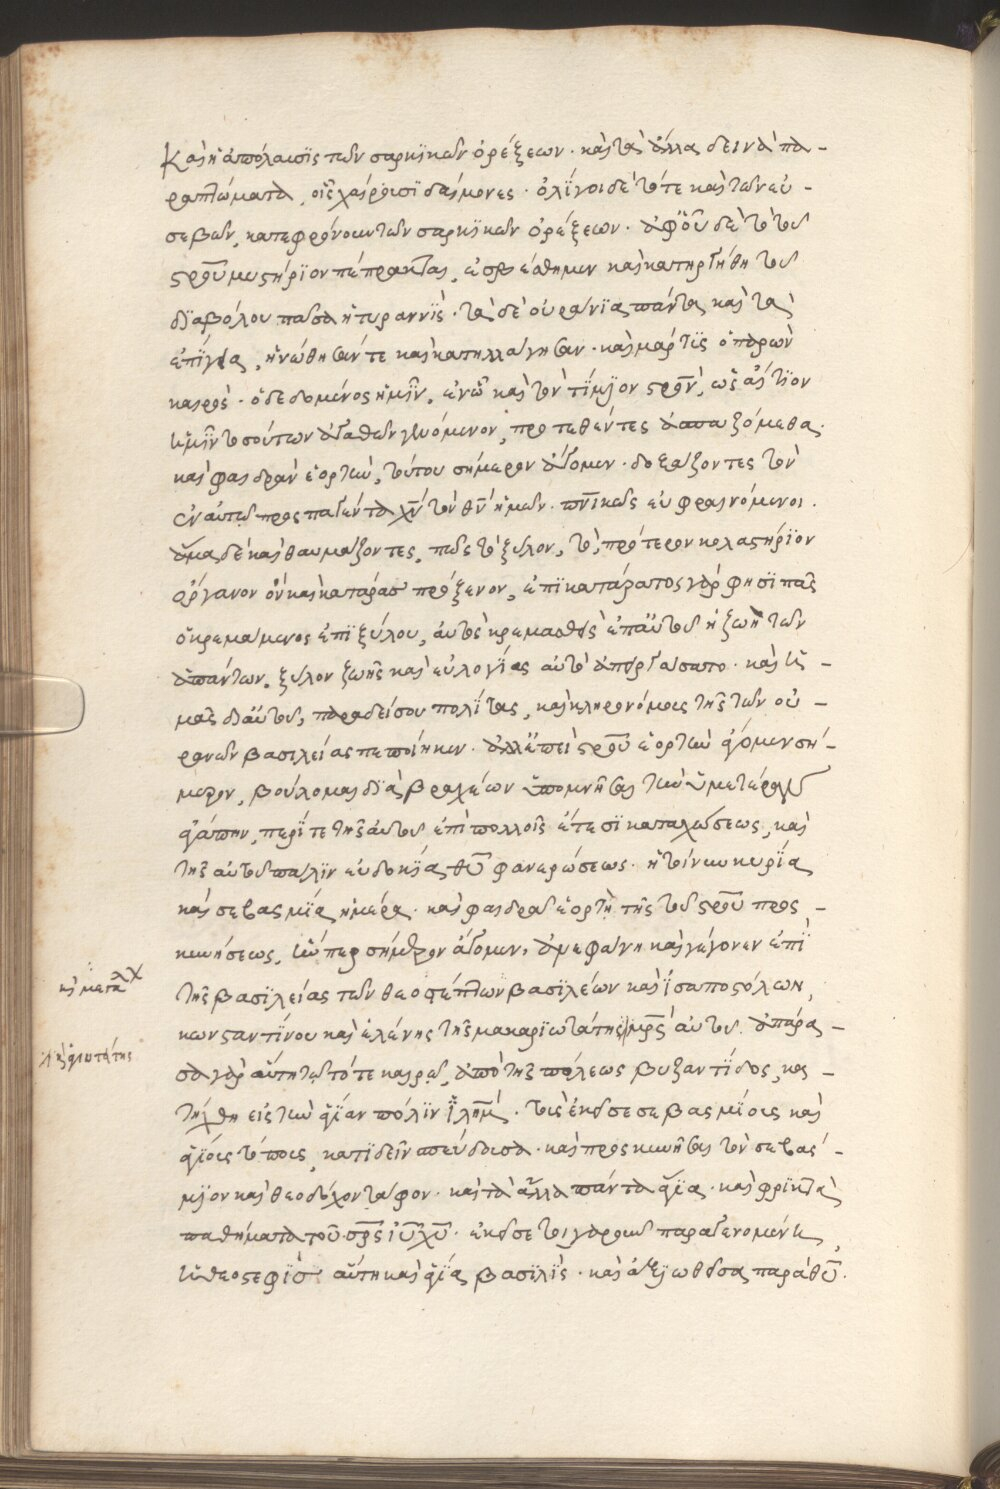 Καὶ ἡ ἀπόλαυσϊς τῶν σαρκϊκῶν ὀρέξεων · καὶ τὰ ἄλλα δεινὰ πα -
ραπτώματα, οἷς χαίρουσϊ δαίμονες · ὀλίγοι δὲ τότε καὶ τῶν εὐ -
σεβῶν, κατεφρόνουν τῶν σαρκϊκῶν ὀρέξεων · ἀφ' οὗ δὲ τὸ τοῦ
σροῦ μυστήριον πέπρακται, ἐσρεύθημεν καὶ κατηργήθη τοῦ
δϊαβόλου πᾶσα ἡ τυραννϊς · τὰ δὲ οὐράνϊα πάντα καὶ τὰ
ἐπίγεια, ἡνώθησάν τε καὶ κατηλλάγησαν · καὶ μάρτϊς ὁ παρὼν
καιρὸς · ὁ δεδομένος ἡμῖν, ἐν ᾧ καὶ τὸν τίμϊον σρὸν, ὡς αἴτϊον
ἡμῖν τοσούτων ἀγαθῶν γενόμενον, προτεθέντες ἀσπαζόμεθα ·
καὶ φαιδρὰν ἑορτὴν, τούτου σήμερον ἄγομεν · δοξάζοντες τὸν
ἐν αὐτῷ προσπαγέντα χν τὸν θν ἡμῶν · πνικῶς εὐφραινόμενοι ·
ἅμα δὲ καὶ θαυμάζοντες, πῶς τὸ ξύλον, τὸ πρότερον κολαστήρϊον
ὄργανον ὂν καὶ κατάρας πρόξενον, ἐπϊκατάρατος γάρ φησϊ πᾶς
ὁ κρεμάμενος ἐπϊ ξύλου, αὐτὸς κρεμασθεὶς ἐπ' αὐτοῦ ἡ ζωὴ τῶν
ἁπάντων, ξύλον ζωῆς καὶ εὐλογίας αὐτὸ ἀπειργάσατο · καὶ ἡ -
μᾶς δι' αὐτοῦ, παραδείσου πολίτας, καὶ κληρονόμους τῆς τῶν οὐ -
ρανῶν βασιλείας πεποίηκεν · ἀλλ' ἐπεὶ σροῦ ἑορτὴν ἄγομεν σή -
μερον, βούλομαι δϊὰ βραχέων ὑπομνῆσαι τὴν ὑμετέραν
ἀγάπην, περί τε τῆς αὐτοῦ ἐπὶ πολλοῖς ἔτεσϊ καταχώσεως, καὶ
τῆς αὐτοῦ πάλϊν εὐδοκίᾳ θυ φανερώσεως · ἡ τοίνυν κυρία
καὶ σεβασμία ἡμέρα · καὶ φαιδρὰ ἑορτὴ τῆς τοῦ σροῦ προσ -
κυνήσεως, ἥνπερ σήμερον ἄγομεν, ἀνεφάνη καὶ γέγονεν ἐπϊ
τῆς βασϊλείας τῶν θεοσέπτων βασϊλέων καὶ ἰσαποστόλων,
κωνσταντίνου καὶ ἑλένης τῆς μακαρϊωτάτης μρς αὐτοῦ · ἀπάρα -
σα γὰρ αὕτη τῷ τότε καιρῷ, ἀπὸ τῆς πόλεως βυζαντίδος, κα -
τήχθη εἰς τὴν ἁγίαν πόλϊν ἰλημ · τοῖς ἐκεῖσε σεβασμίοις καὶ
ἁγίοις τόποις, κατιδεῖν σπεύδουσα · καὶ προσκυνῆσαι τὸν σεβάσ -
μϊον καὶ θεοδόχον τάφον · καὶ τὰ ἄλλα πάντα ἅγϊα · καὶ φρϊκτὰ
παθήματα τοῦ σρς ἰυ χυ · ἐκεῖσε τοιγαροῦν παραγενομένη,
ἡ θεοσεφὴς αὕτη καὶ ἁγία βασϊλϊς · καὶ ἀξϊωθεῖσα παρὰ θυ ·